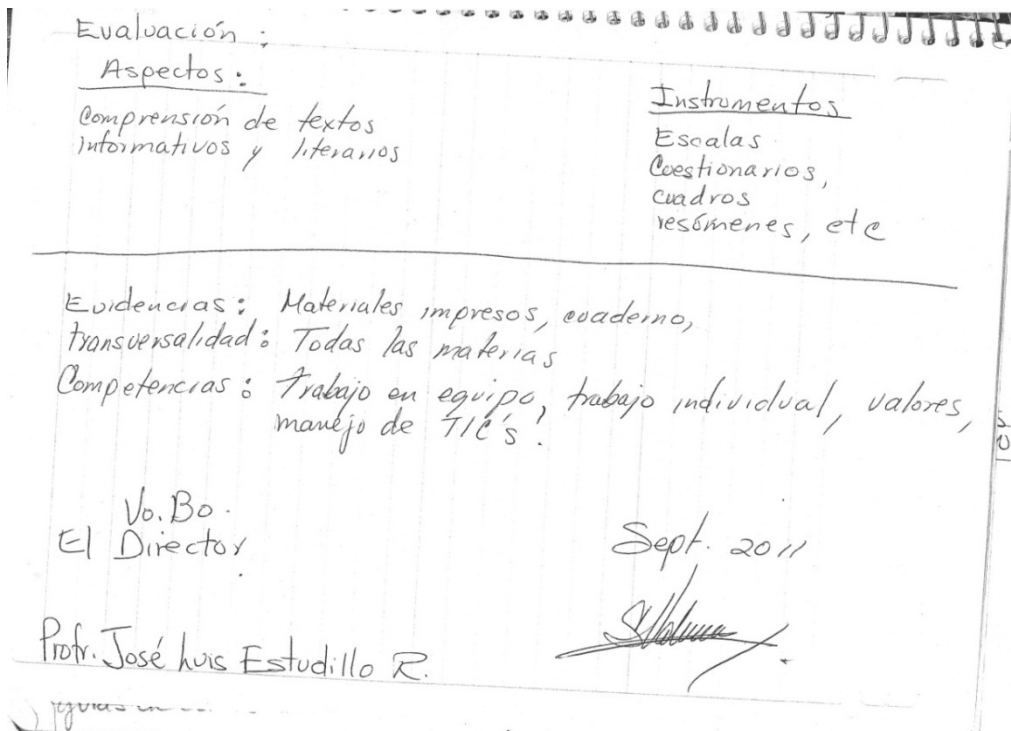 Evaluación :
Aspectos :
Comprensión de textos
informativos y literarios
Instrumentos
Escalas
Cuestionarios,
cuadros
resúmenes, etc
Evidencias : Materiales impresos, cuaderno,
transversalidad : Todas las materias
Competencias : Trabajo en equipo, trabajo individual, valores,
manejo de TIC's.
Vo. Bo.
El Director
Sept. 2011
Profr. José Luis Estudillo R.